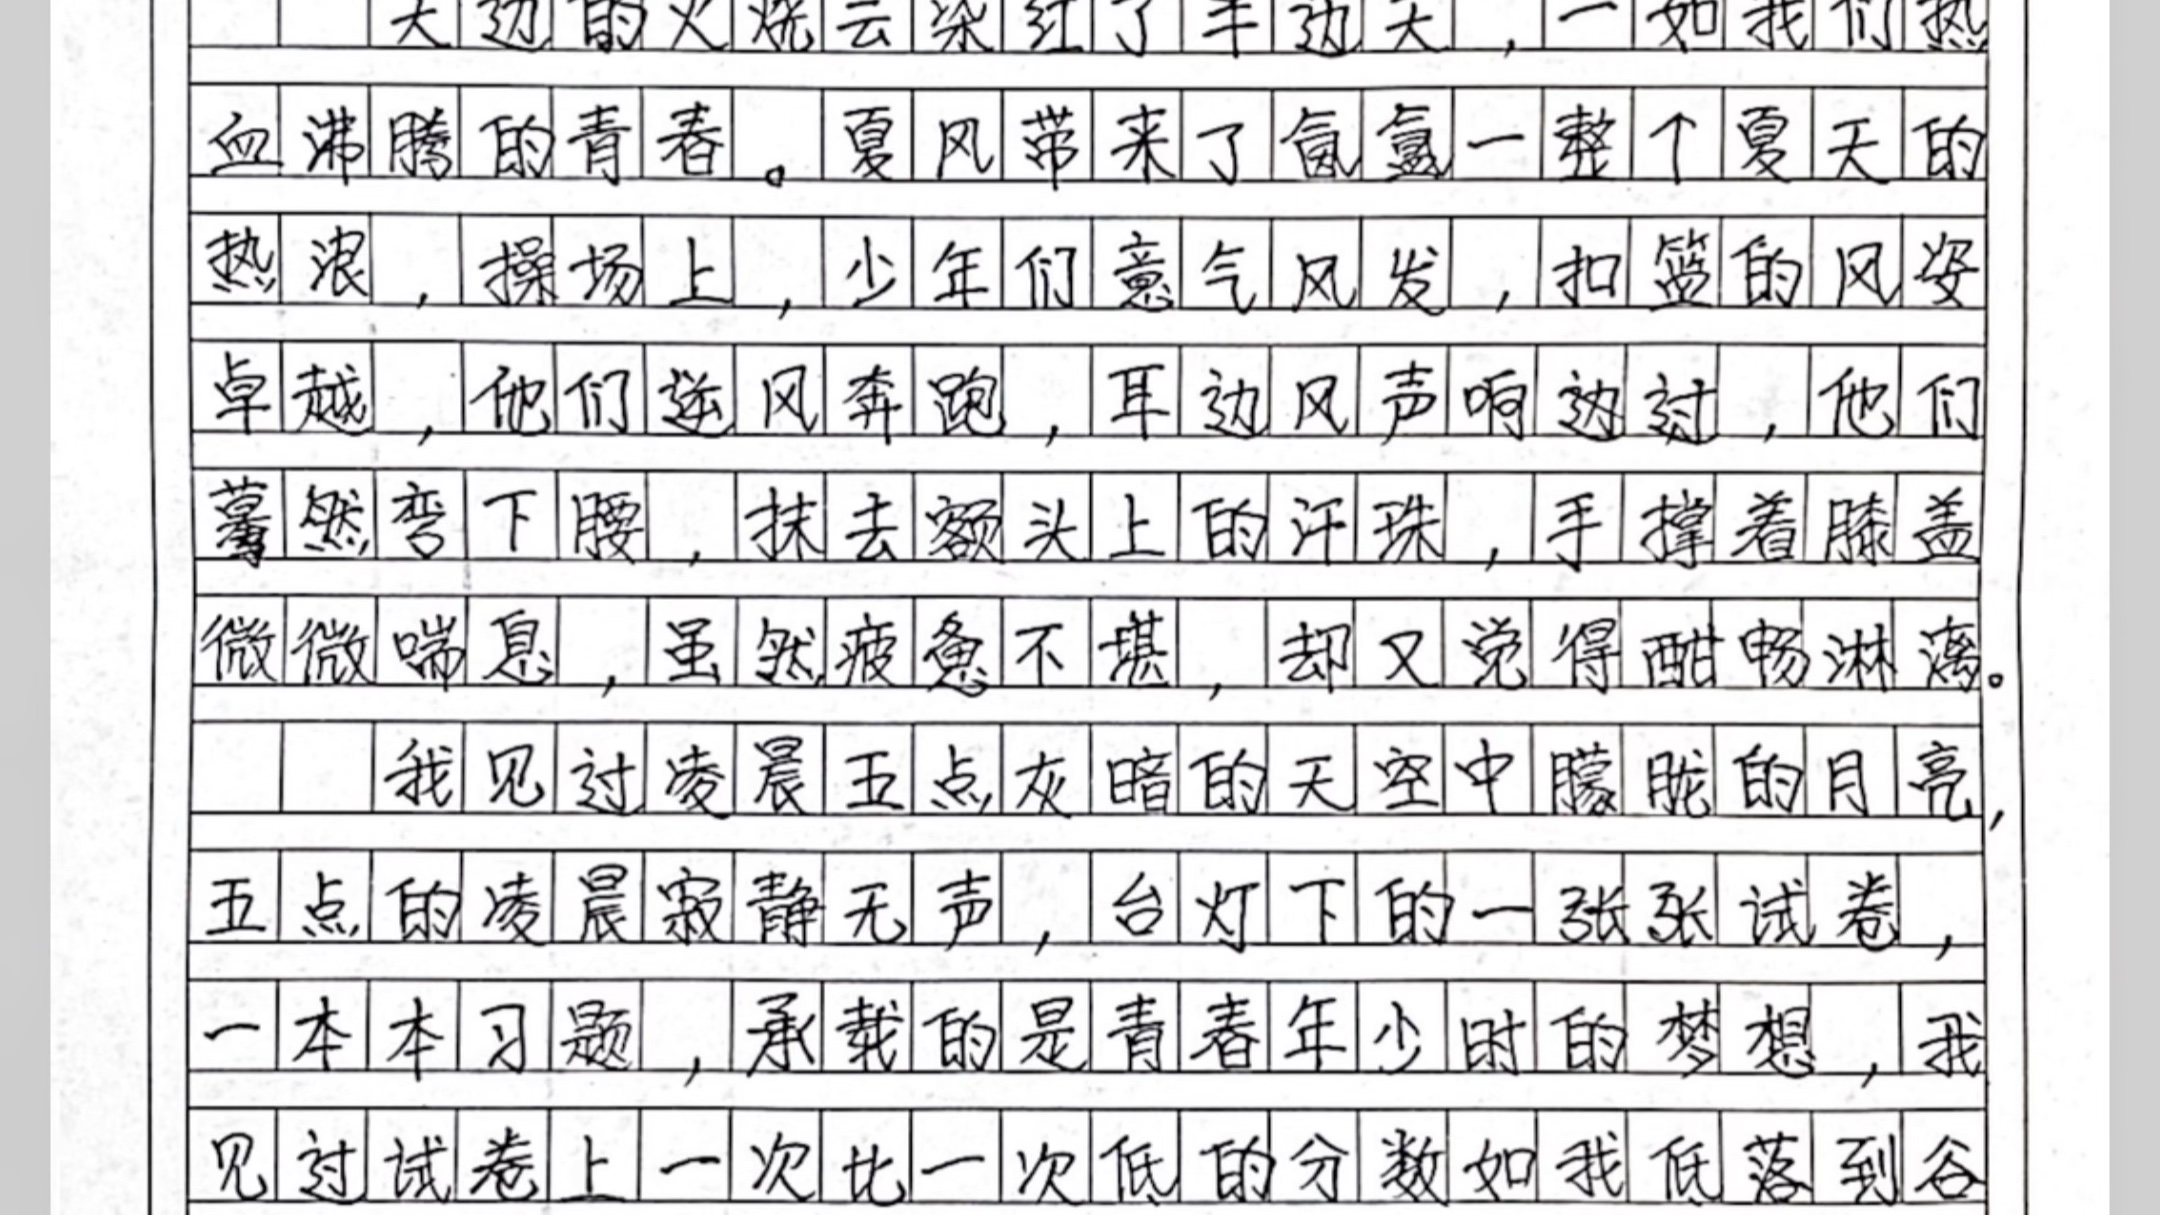 天边的火烧云染红了半边天，一如我们热
血沸腾的青春。夏风带来了氤氲一整个夏天的
热浪，操场上，少年们意气风发，扣篮的风姿
卓越，他们逆风奔跑，耳边风声响边过，他们
蓦然弯下腰，抹去额头上的汗珠，手撑着膝盖
微微喘息，虽然疲惫不堪，却又觉得酣畅淋漓。
我见过凌晨五点灰暗的天空中朦胧的月亮，
五点的凌晨寂静无声，台灯下的一张张试卷，
一本本习题，承载的是青春年少时的梦想，我
见过试卷上一次比一次低的分数如我低落到谷